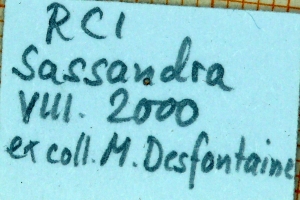 RCI
Sassandra
VIII. 2000
ex coll. M. Desfontaine